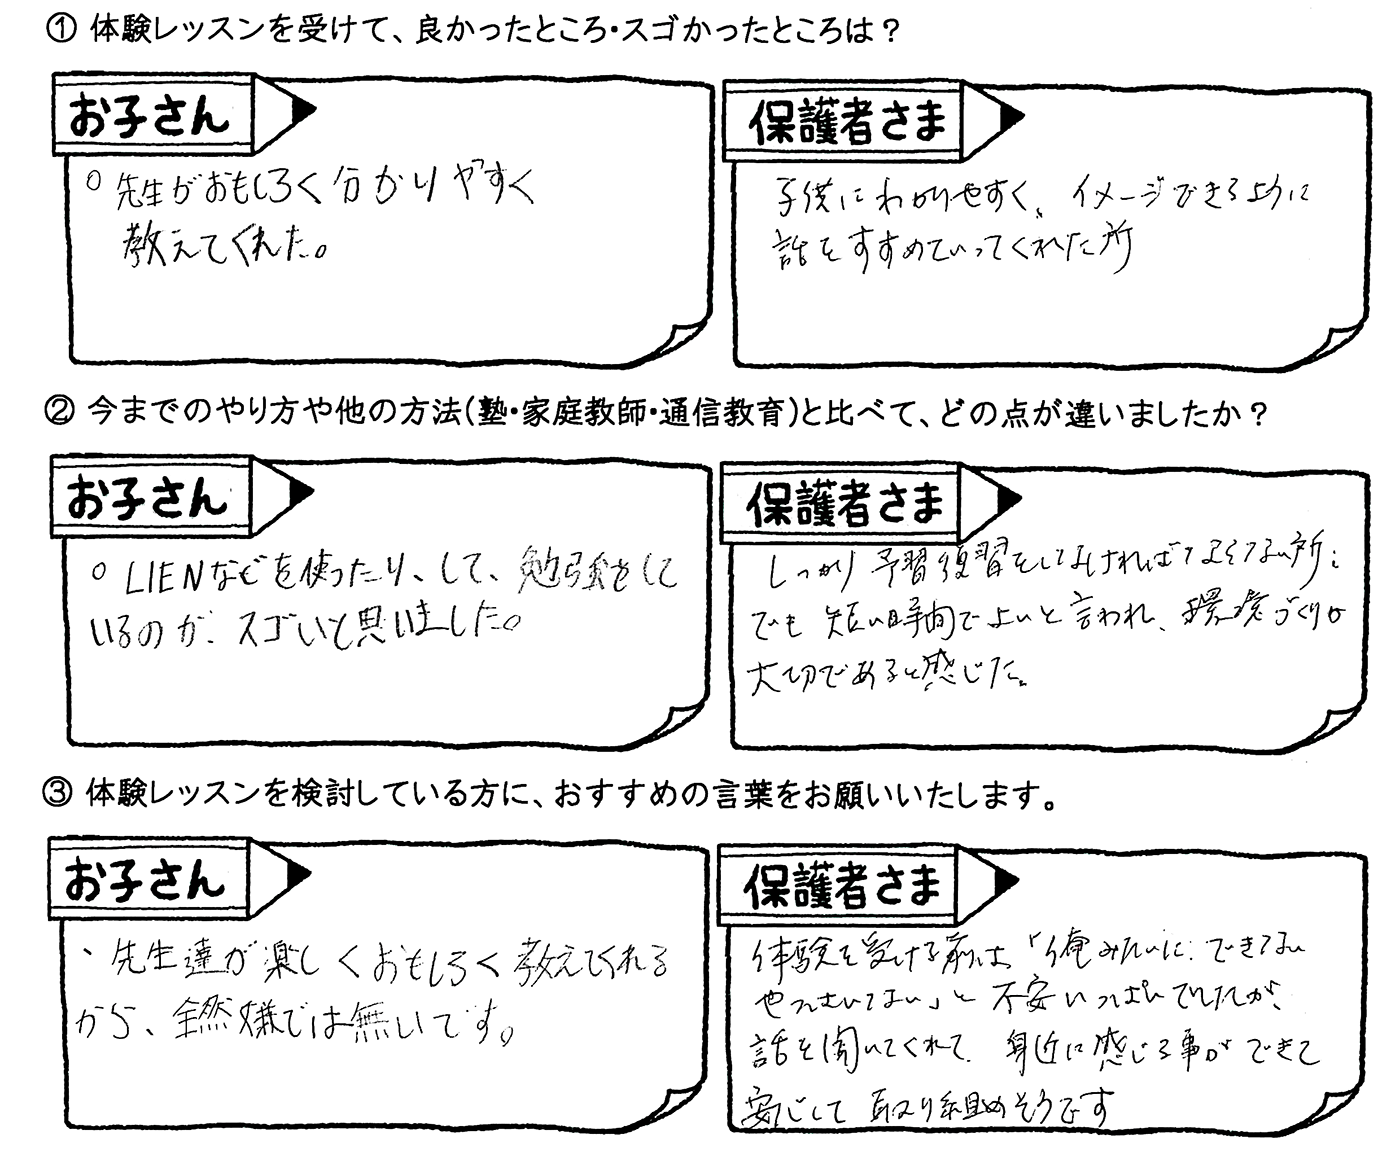 ① 体験レッスンを受けて、良かったところ・スゴかったところは？
お子さん
○ 先生がおもしろく分かりやすく
教えてくれた。
保護者さま
子供にわかりやすく、イメージできるように
話をすすめていってくれた所
② 今までのやり方や他の方法(塾・家庭教師・通信教育)と比べて、どの点が違いましたか？
お子さん
○ LIENなどを使ったり、して、勉強をして
いるのが、スゴいと思いました。
保護者さま
しっかり予習復習をしなければ
でも短い時間でよいと言われ、環境づくりが
大切であると感じた。
③ 体験レッスンを検討している方に、おすすめの言葉をお願いいたします。
お子さん
・先生達が楽しくおもしろく教えてくれる
から、全然嫌では無いです。
保護者さま
体験を受ける前は「俺みたいにできない
やついない」と不安いっぱいでしたが、
話を聞いてくれて、身近に感じる事ができて
安心して取り組めそうです